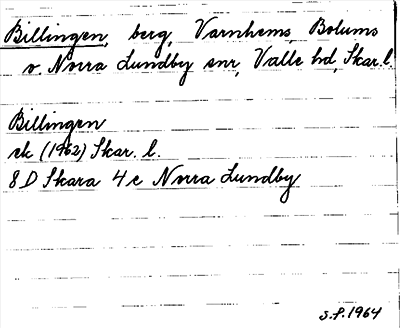 Billingen, berg, Varnhems, Bolums
o. Norra Lundby snr, Valle hd, Skar. l.
Billingen
ek (1962) Skar. l.
8 D Skara 4 e Norra Lundby
S.P. 1964